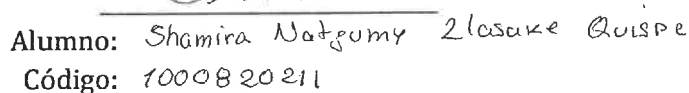 Alumno: Shamira Natzumy Llasake Quispe
Código: 1000820211